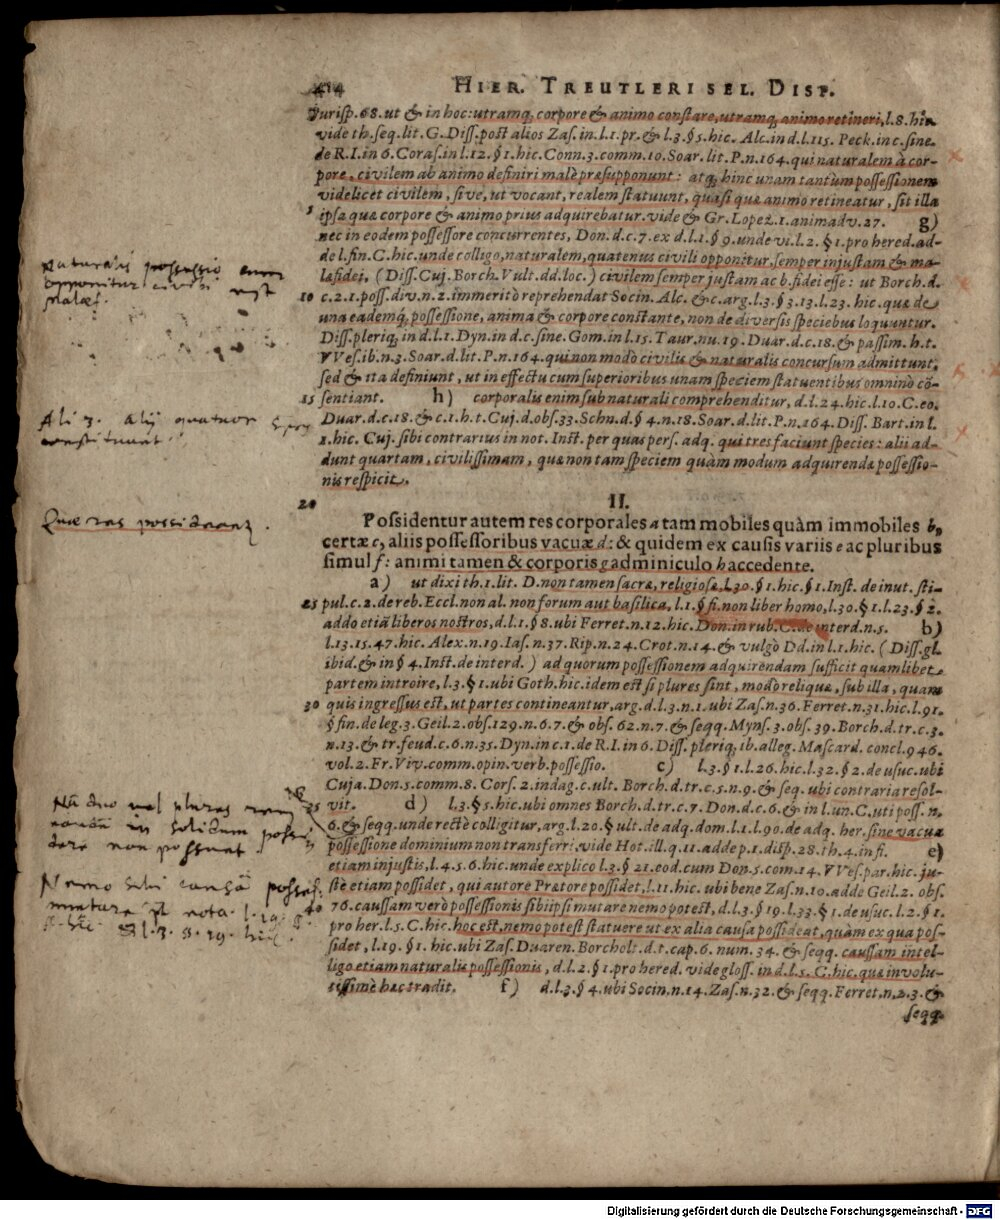 HIER. TREUTLERI SEL. DISP.
Jurisp. 68. ut & in hoc: utramq; corpore & animo constare, utramq; animo retineri, l. 8. hîc
vide th. seq. lit. G. Diss. post alios Zas. in. l. 1. pr. & l. 3. § 5. hic. Alc. in d. l. 115. Peck. in c. sine.
de R. I. in 6. Coras. in l. 12. § 1. hic. Conn. 3. comm. 10. Soar. lit. P. n. 164. qui naturalem à cor-
pore, civilem ab animo definiri malè præsupponunt: atq; hinc unam tantùm possessionem
videlicet civilem, sive, ut vocant, realem statuunt, quasi quæ animo retineatur, sit illa
5 ipsa quæ corpore & animo prius adquirebatur. vide & Gr. Lopez. 1. animadv. 27. g)
nec in eodem possessore concurrentes, Don. d. c. 7. ex d. l. 1. § 9. unde vi. l. 2. § 1. pro hered. ad-
de l. fin. C. hic. unde colligo, naturalem, quatenus civili opponitur, semper injustam & ma-
læ fidei, (Diss. Cuj. Borch. Vult. dd. loc.) civilem semper justam ac b. fidei esse: ut Borch. d.
10 c. 2. t. poss. div. n. 2. immeritò reprehendat Socin. Alc. & c. arg. l. 3. § 3. 13. l. 23. hic. quæ de
una eademq; possessione, anima & corpore constante, non de diversis speciebus loquuntur.
Diss. pleriq; in d. l. 1. Dyn. in d. c. sine. Gom. in l. 15. Taur. nu. 19. Duar. d. c. 18. & passim. h. t.
VVes. ib. n. 3. Soar. d. lit. P. n. 164. qui non modò civilis & naturalis concursum admittunt,
sed & ita definiunt, ut in effectu cum superioribus unam speciem statuentibus omninò cō-
15 sentiant. h) corporalis enim sub naturali comprehenditur, d. l. 24. hic. l. 10. C. eo.
Duar. d. c. 18. & c. 1. h. t. Cuj. d. obs. 33. Schn. d. § 4. n. 18. Soar. d. lit. P. n. 164. Diss. Bart. in l.
1. hic. Cuj. sibi contrarius in not. Inst. per quas pers. adq. qui tres faciunt species: alii ad-
dunt quartam, civilissimam, quæ non tam speciem quàm modum adquirendæ possessio-
nis respicit.
20 II.
Possidentur autem res corporales a tam mobiles quàm immobiles b,
certæ c, aliis possessoribus vacuæ d: & quidem ex causis variis e ac pluribus
simul f: animi tamen & corporis g adminiculo h accedente.
a) ut dixi th. 1. lit. D. non tamen sacræ, religiosæ, l. 30. § 1. hic. § 1. Inst. de inut. sti-
25 pul. c. 2. de reb. Eccl. non al. non forum aut basilica, l. 1. § fi. non liber homo, l. 30. § 1. l. 23. § 2.
addo etiā liberos nostros, d. l. 1. § 8. ubi Ferret. n. 12. hic. Don. in rub. C. de interd. n. 5. b)
l. 13. 15. 47. hic. Alex. n. 19. Ias. n. 37. Rip. n. 24. Crot. n. 14. & vulgò Dd. in l. 1. hic. (Diss. gl.
ibid. & in § 4. Inst. de interd.) ad quorum possessionem adquirendam sufficit quamlibet
partem introire, l. 3. § 1. ubi Goth. hic. idem est si plures sint, modò reliquæ, sub illa, quam
30 quis ingressus est, ut partes contineantur, arg. d. l. 3. n. 1. ubi Zas. n. 36. Ferret. n. 31. hic. l. 91.
§ fin. de leg. 3. Geil. 2. obs. 129. n. 6. 7. & obs. 62. n. 7. & seqq. Myns. 3. obs. 39. Borch. d. tr. c. 3.
n. 13. & tr. feud. c. 6. n. 35. Dyn. in c. 1. de R. I. in 6. Diss. pleriq; ib. alleg. Mascard. concl. 946.
vol. 2. Fr. Viv. comm. opin. verb. possessio. c) l. 3. § 1. l. 26. hic. l. 32. § 2. de usuc. ubi
Cuja. Don. 5. comm. 8. Cors. 2. indag. c. ult. Borch. d. tr. c. 5. n. 9. & seq. ubi contraria resol-
35 vit. d) l. 3. § 5. hic. ubi omnes Borch. d. tr. c. 7. Don. d. c. 6. & in l. un. C. uti poss. n.
6. & seqq. unde rectè colligitur, arg. l. 20. § ult. de adq. dom. l. 1. l. 90. de adq. her. sine vacua
possessione dominium non transferri. vide Hot. ill. q. 11. adde p. 1. disp. 28. th. 4. in fi. e)
etiam injustis, l. 4. 5. 6. hic. unde explico l. 3. § 21. eod. cum Don. 5. com. 14. VVes. par. hic. ju-
stè etiam possidet, qui autore Prætore possidet, l. 11. hic. ubi bene Zas. n. 10. adde Geil. 2. obs.
40 76. caussam verò possessionis sibi ipsi mutare nemo potest, d. l. 3. § 19. l. 33. § 1. de usuc. l. 2. § 1.
pro her. l. 5. C. hic. hoc est, nemo potest statuere ut ex alia causa possideat, quàm ex qua pos-
sidet, l. 19. § 1. hic. ubi Zas. Duaren. Borcholt. d. t. cap. 6. num. 34. & seqq. caussam intel-
ligo etiam naturalis possessionis, d. l. 2. § 1. pro hered. vide gloss. in d. l. 5. C. hic. quæ involu-
tissimè hæc tradit. f) d. l. 3. § 4. ubi Socin. n. 14. Zas. n. 32. & seqq. Ferret. n. 2. 3. &
seqq.
Naturalis possessio cum
opponitur civili est
malæ f.
Alii 3. alij quatuor
constituunt
Quæ res possideantur.
duo vel plures
in solidum possi
dere non possunt
Nemo sibi causā posses.
mutare potest l. 19. §
l. 3. § 19. hic.
Digitalisierung gefördert durch die Deutsche Forschungsgemeinschaft - DFG